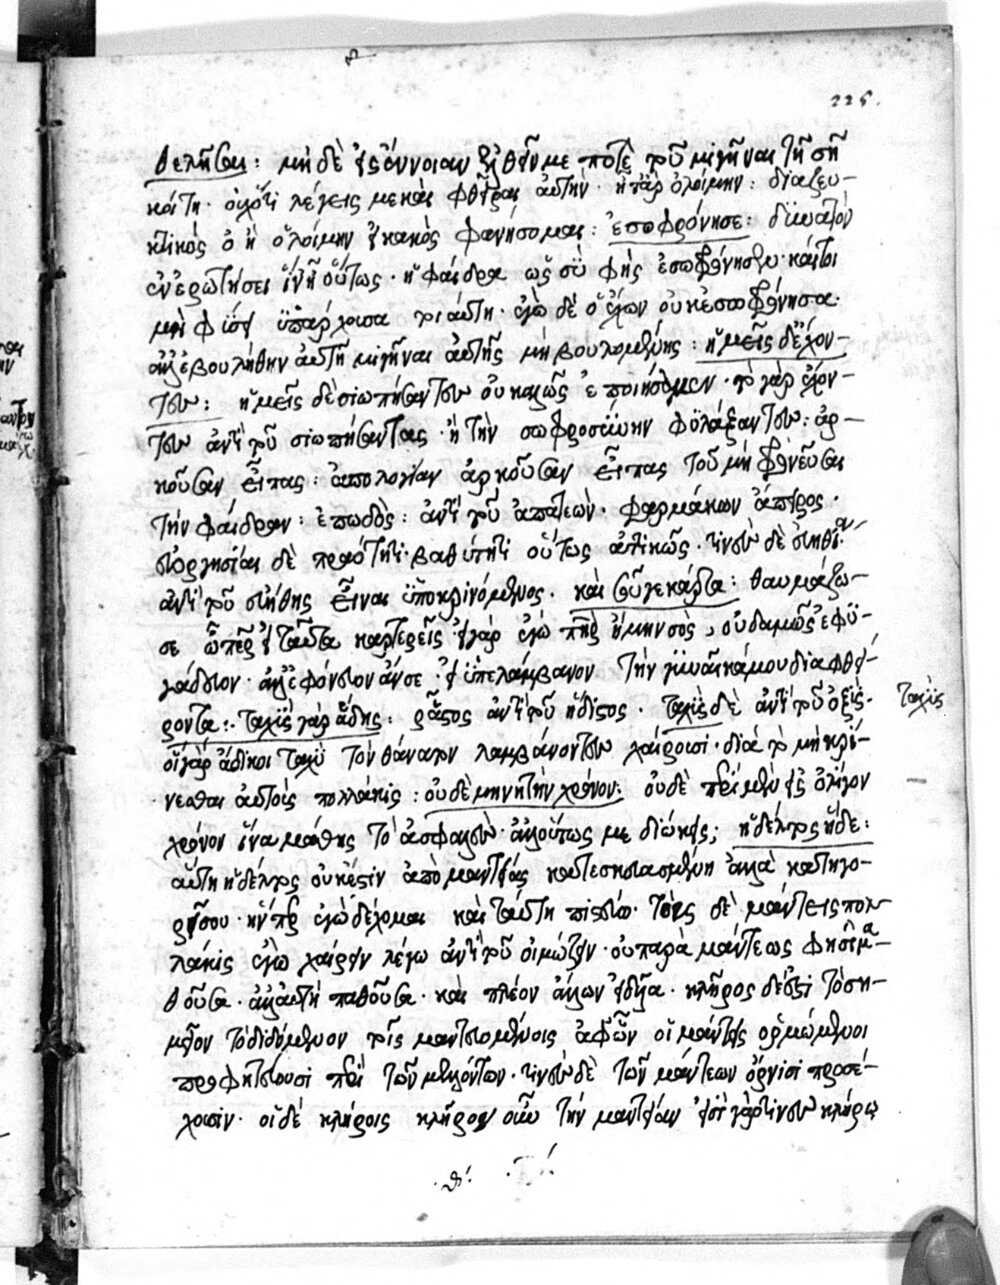 225.
θελῆσαι: μὴ δὲ εἰς ἔννοιαν ἐλθεῖν με ποτὲ τοῦ μιγῆναι τῇ σῇ
κοίτῃ. ὁλότι λέγεις με καὶ φθεῖραι αὐτήν. ἢ τἄρ' ὀλοίμην: διαζευ-
κτικὸς ὁ ἢ ὀλοίμην εἰ κακὸς φανήσομαι: ἐσωφρόνησε:
ἐν ἐρωτήσει ἵν' ᾖ οὕτως. ἡ φαίδρα ὡς σὺ φὴς ἐσωφρόνησεν. καίτοι
μὴ φύσει ὑπάρχουσα τοιαύτη. ἐγὼ δὲ ὁ ἔχων οὐκ ἐσωφρόνησα.
ἀλλ' ἐβουλήθην αὐτῇ μιγῆναι αὐτῆς μὴ βουλομένης: ἡμεῖς δ' ἔχον-
τες: ἡμεῖς δὲ σιωπήσαντες οὐ καλῶς ἐποιήσαμεν. τὸ γὰρ ἔχον-
τες ἀντὶ τοῦ σιωπήσαντες. ἢ τὴν σωφροσύνην φυλάξαντες: ἀρ-
κοῦσαν εἶπας: ἀπολογίαν ἀρκοῦσαν εἶπας τοῦ μὴ
τὴν φαίδραν: ἐπωδὸς: ἀντὶ τοῦ ἀπατεών. φαρμάκων ἄπειρος.
εὐοργησίαι δὲ πραότητι. βαθύτητι οὕτως ἀττικῶς. τινὲς δὲ
ἀντὶ τοῦ εὐήθης εἶναι ὑποκρινόμενος. καὶ σοῦ γε κάρτα: θαυμάζω-
σε ὥσπερ εἰ ταῦτα καρτερεῖς. εἰ γὰρ ἐγὼ πατὴρ ἤμην σος, οὐδαμῶς ἐφυ-
γάδευον. ἀλλ' ἐφόνευον ἄν σε. εἰ ὑπελάμβανον τὴν γυναῖκά μου διαφθεί-
ροντα:. ταχὺς γὰρ ἅδης: ῥᾷστος ἀντὶ τοῦ ἥδιστος. ταχὺς δὲ ἀντὶ τοῦ ὀξύς.
ταχὺς
οἱ γὰρ ἄδικοι ταχὺ τὸν θάνατον λαμβάνοντες χαίρουσι. διὰ τὸ μὴ κρί-
νεσθαι αὐτοὺς πολλάκις: οὐδὲ μηνυτὴν χρόνον: οὐδὲ περιμένεις ὀλίγον
χρόνον ἵνα μάθῃς τὸ ἀσφαλές. ἀλλ' οὕτως με διώκεις; ἡ δέλτος ἥδε:
αὕτη ἡ δέλτος οὐκ ἔστιν ἀπὸ μαντείας κατεσκευασμένη ἀλλὰ κατηγο-
ρεῖ σου. ἥν περ ἐγὼ δέχομαι καὶ ταύτῃ πιστεύω. τοὺς δὲ μάντεις πολ-
λάκις ἐγὼ χαίρειν λέγω ἀντὶ τοῦ οἰμώζειν. οὐ παρὰ μάντεως φησὶ μα-
θοῦσα. ἀλλ' αὐτὴ παθοῦσα. καὶ πλέον ἄλλων εἰδυῖα. κλῆρος δέ ἐστι τὸ ση-
μεῖον τὸ διδόμενον τοῖς μαντευομένοις ἀφ' ὧν οἱ μάντεις ὁρμώμενοι
προφητεύουσι περὶ τῶν μελλόντων. τινὲς δὲ τῶν μάντεων ὄρνισι προσέ-
χουσιν. οἱ δὲ κλήροις κλῆρον οὖν τὴν μαντείαν εἰσὶ γὰρ τινὲς κλήρῳ